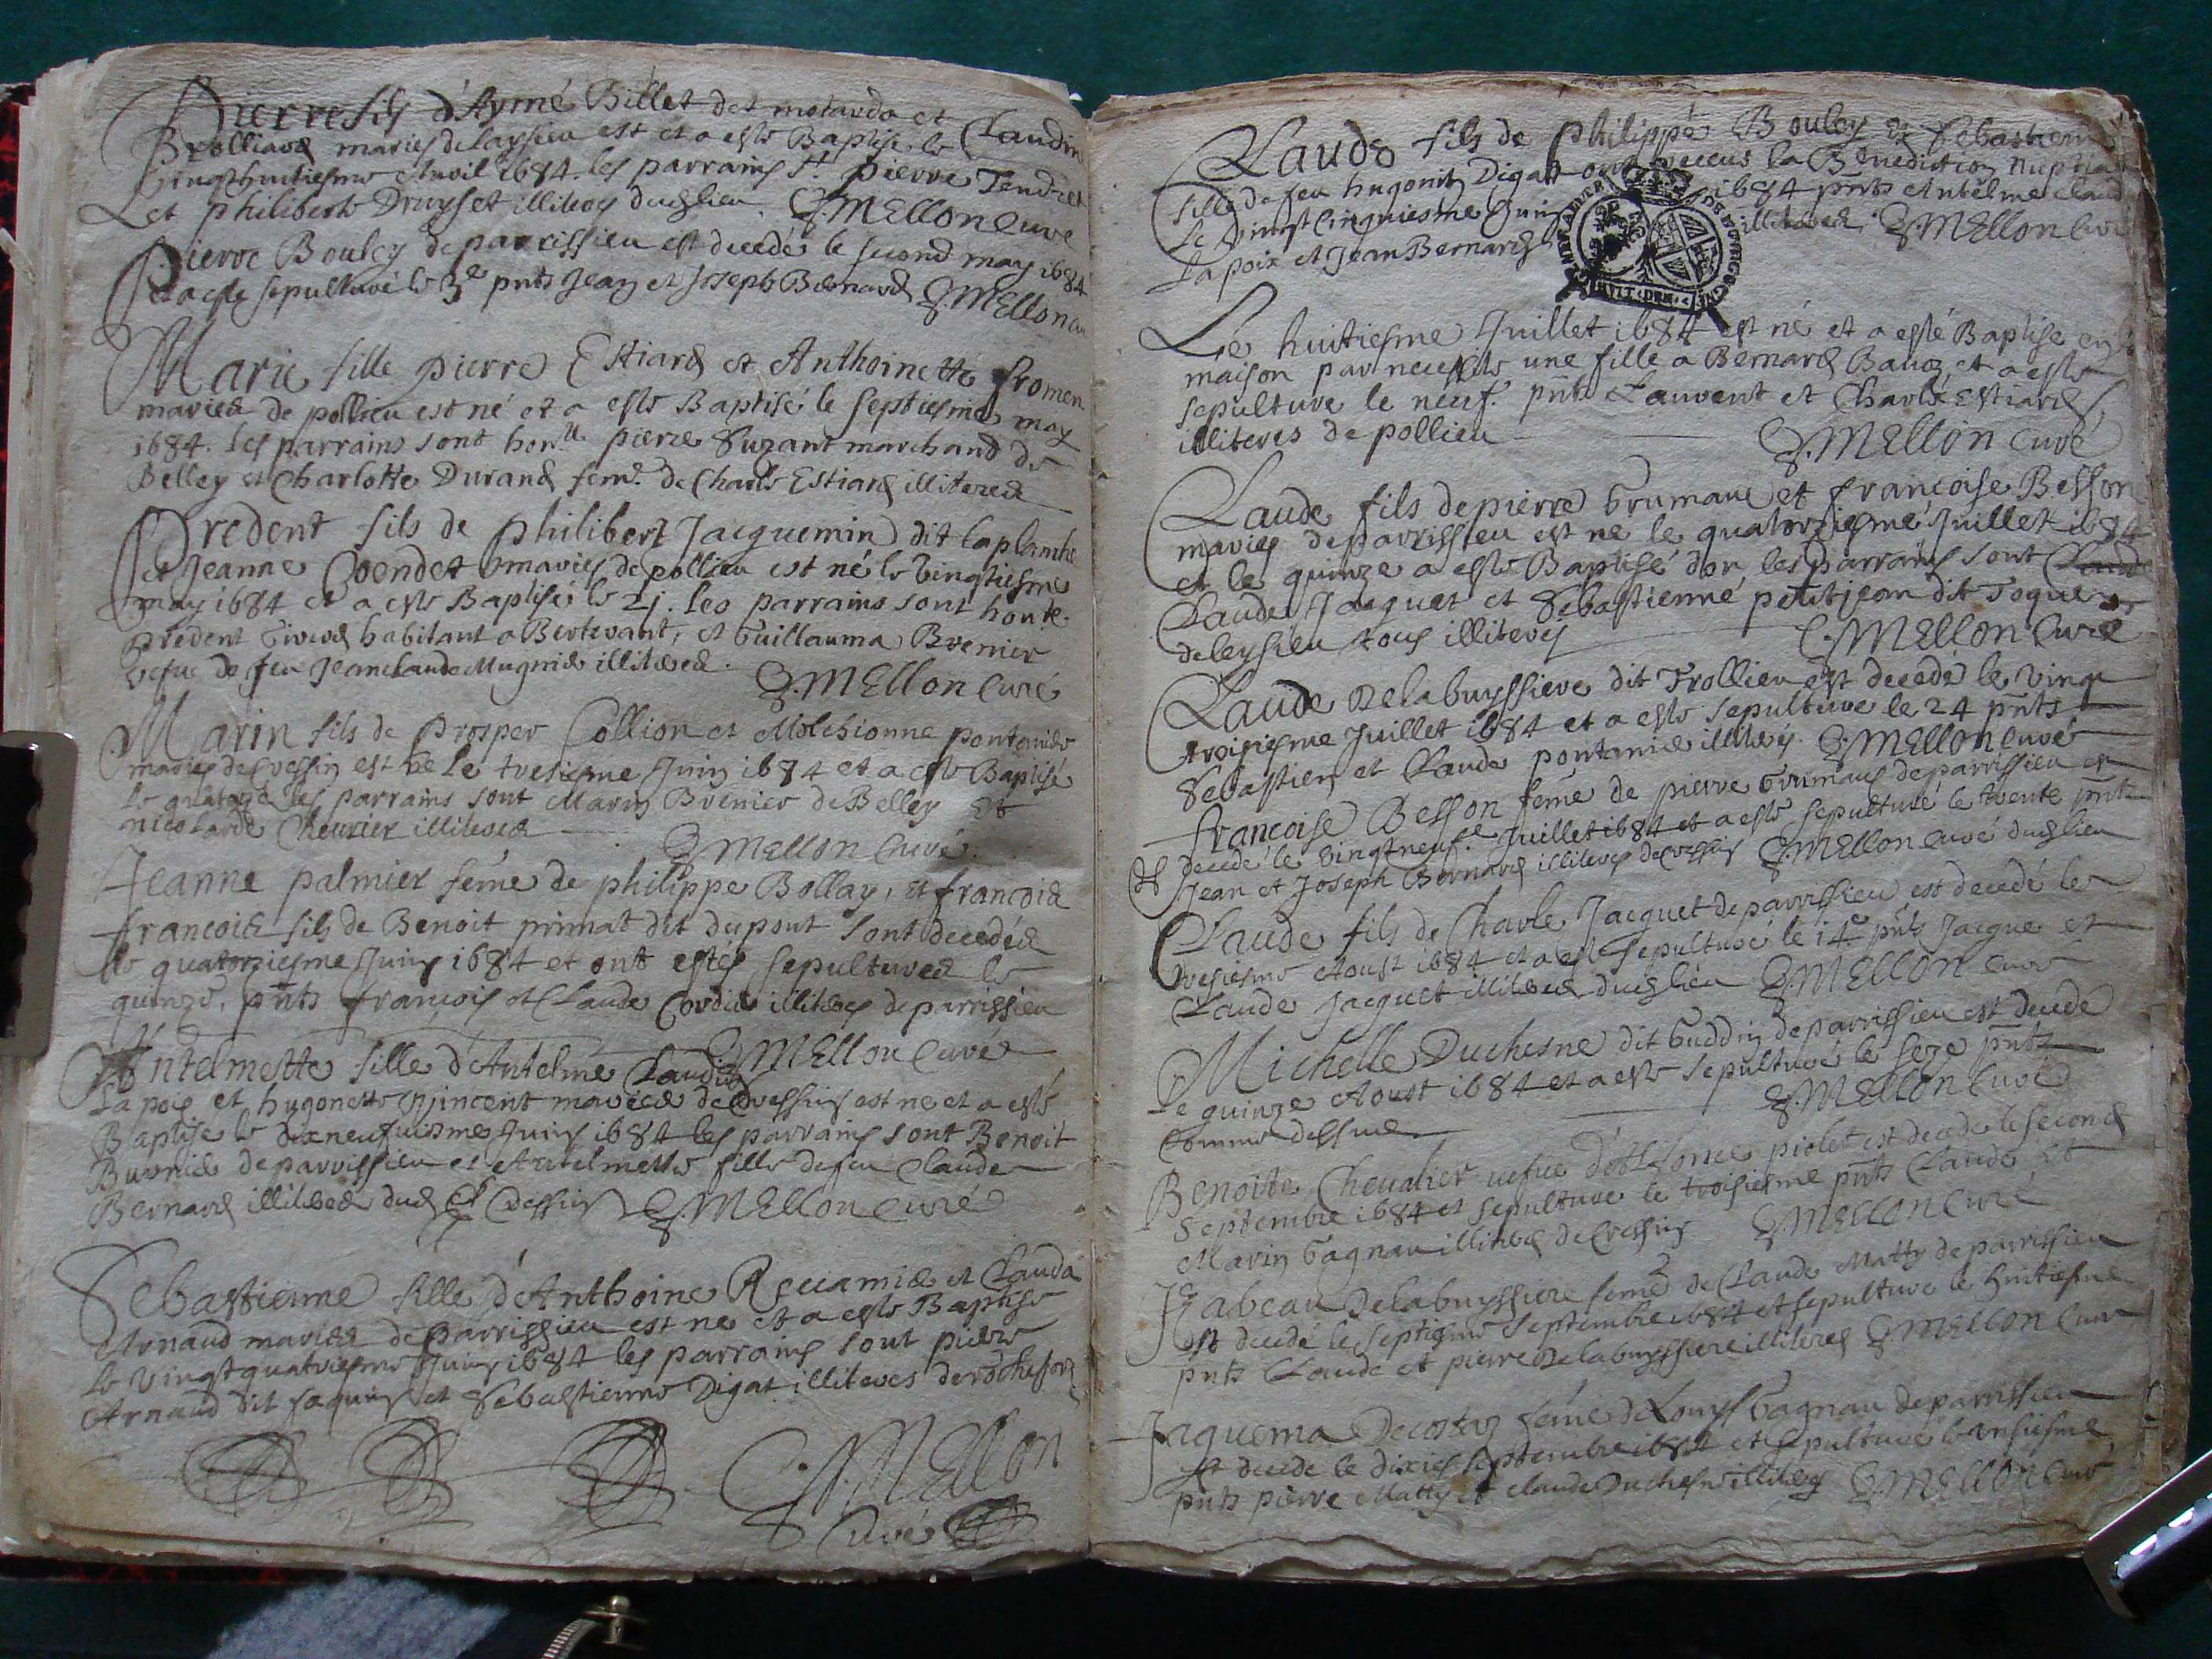 Pierre fils d'Aymé Billet det motardo et Claudin
Brolliard maries de Laysieu est et a este Baptise le
vingthuitiesme Avril 1684. les parrains Sr. pierre Tendret
et philibert Druyset illiteres dud lieu. C. MEllon Curé
Pierre Bouley de parrissieu est decedé le second may 1684
et a este sepulturé le 3e pnts Jean et Joseph Bernard C. MEllon cu
Marie fille pierre Estiard et Anthoinette fromen
maries de pollieu est né et a este Baptisé le septiesme may
1684. les parrains sont honble pierre Suzant marchand de
Belley et Charlotte Durand feme. de Charls Estiard illiteres
Predent fils de philibert Jacquemin dit laplanche
et Jeanne Coendet maries de pollieu est né le vingtiesme
may 1684 et a este Baptisé le 21. les parrains sont honte.
predent Girerd habitant a Bertevant, et Guillauma Brenier
vefue de feu Jeanclaude Mugnie illiteres.
C. MEllon Curé
Marin fils de Prosper Collion et Melchionne pontanie
maries de Cressin est né le tresiesme Juin 1684 et a este Baptisé
le quatorze les parrains sont Marin Brenier de Belley et
nicolarde Cheurier illiteres
C. MEllon Curé.
Jeanne palmier féme de philippe Bollay, et francois
francois fils de Benoit primat dit dupont sont decedés
le quatorziesme Juin 1684 et ont estés sepultures le
quinze, pnts francois et Claude Cordie illiteres de parrissieu
C. MEllon Curé
Antelmette fille d'Antelme Claudin
Lapoix et hugonette Vincent maries de Cressin est né et a esté
Baptise le dixneufuiesme Juin 1684 les parrains sont Benoit
Burnie de parrissieu et Antelmette fille de feu Claude
Bernard illiteres dud Cressin C. MEllon Curé
Sebastienne fille d'Anthoine Recamie et Clauda
Arnaud maries de parrissieu est né et a este Baptise
le vingtquatriesme Juin 1684 les parrains sont pierre
Arnaud dit saquin et Sebastienne Digat illiteres de rochefort
C. MEllon
Curé
Claude fils de philippe Bouley et Sebastienne
fille de feu hugonin Digat ont receus la Benediction nuptiale
le vingt cinquiesme Juin 1684 pnts Antelme Claud
Lapoix et Jean Bernard illiteres. C. MEllon Curé
Le huitiesme Juillet 1684 est né et a esté Baptise en la
maison par necessite une fille a Bernard Baud et a este
sepulture le neuf. pnts Laurent et Charle Estiard
illiteres de pollieu
C. MEllon Curé
Claude fils de pierre Grumau et francoise Besson
maries de parrissieu est né le quatorziesme Juillet 1684
et le quinze a este Baptisé don les parrains sont Claude
Claude Jacquet et Sebastienne petitjean dit Toquet
de leysieu tous illiteres
C. MEllon Curé
Claude Delabuyssiere dit Trollieu est decedé le vingt
troisiesme Juillet 1684 et a este sepulture le 24 pnts
Sebastien et Claude pontanie illiteres. C. MEllon Curé
francoise Besson féme de pierre Grumaud de parrissieu est
decedé le vingtneuf.e Juillet 1684 et a este sepulturé le trente pnts
Jean et Joseph Bernard illiteres de Cressin C. MEllon Curé dud lieu
Claude fils de Charle Jacquet de parrissieu est decedé le
tresiesme Aoust 1684 et a este sepulturé le 14e pnts Jacque et
Claude Jacquet illiteres dud lieu C. MEllon Curé
Michelle Duchesne dit Guddin de parrissieu est decede
le quinze Aoust 1684 et a este sepulturé le seze pnts
Comme dessus
C. MEllon Curé
Benoite Cheualier uefue piolet est decede le second
Septembre 1684 et sepulture le troisiesme pnts Claude et
Marin Gagnau illiteres de Cressin C. MEllon Curé
Jsabeau Delabuyssiere feme de Claude Matty de parrissieu
est decedé le septiesme Septembre 1684 et sepulture le huitiesme
pnts Claude et pierre Delabuyssiere illiteres C. MEllon Curé
Jaquema Decostaz féme de Louys Gagnau de parrissieu
est decede le dixies Septembre 1684 et sepulturé le onsiesme
pnts pierre Matty et Claude Duchesne illiteres C. MEllon Curé